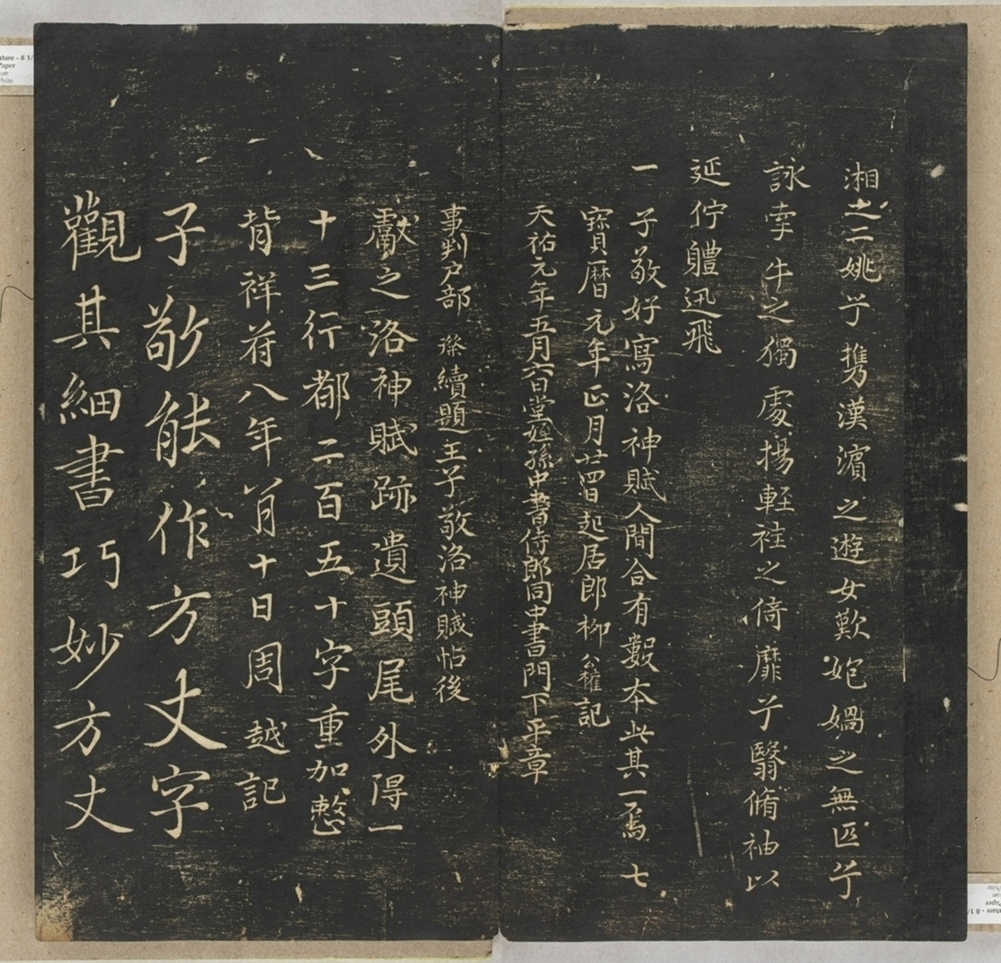 湘之二姚兮攜漢濱之遊女歎匏媧之無匹兮
詠牽牛之獨處揚輕袿之倚靡兮翳脩袖以
延佇軆迅飛
一
子敬好寫洛神賦人間合有數本此其一焉
七
寶曆元年正月廿四日起居郎柳公權記
天祐元年五月六日堂姪孫中書侍郎同中書門下平章
事判户部 璨續題王子敬洛神賦帖後
獻之洛神賦跡遺頭尾外得一
十三行都二百五十字重加整
背祥符八年八月十日周越記
子敬能作方丈字
觀其細書巧妙方丈